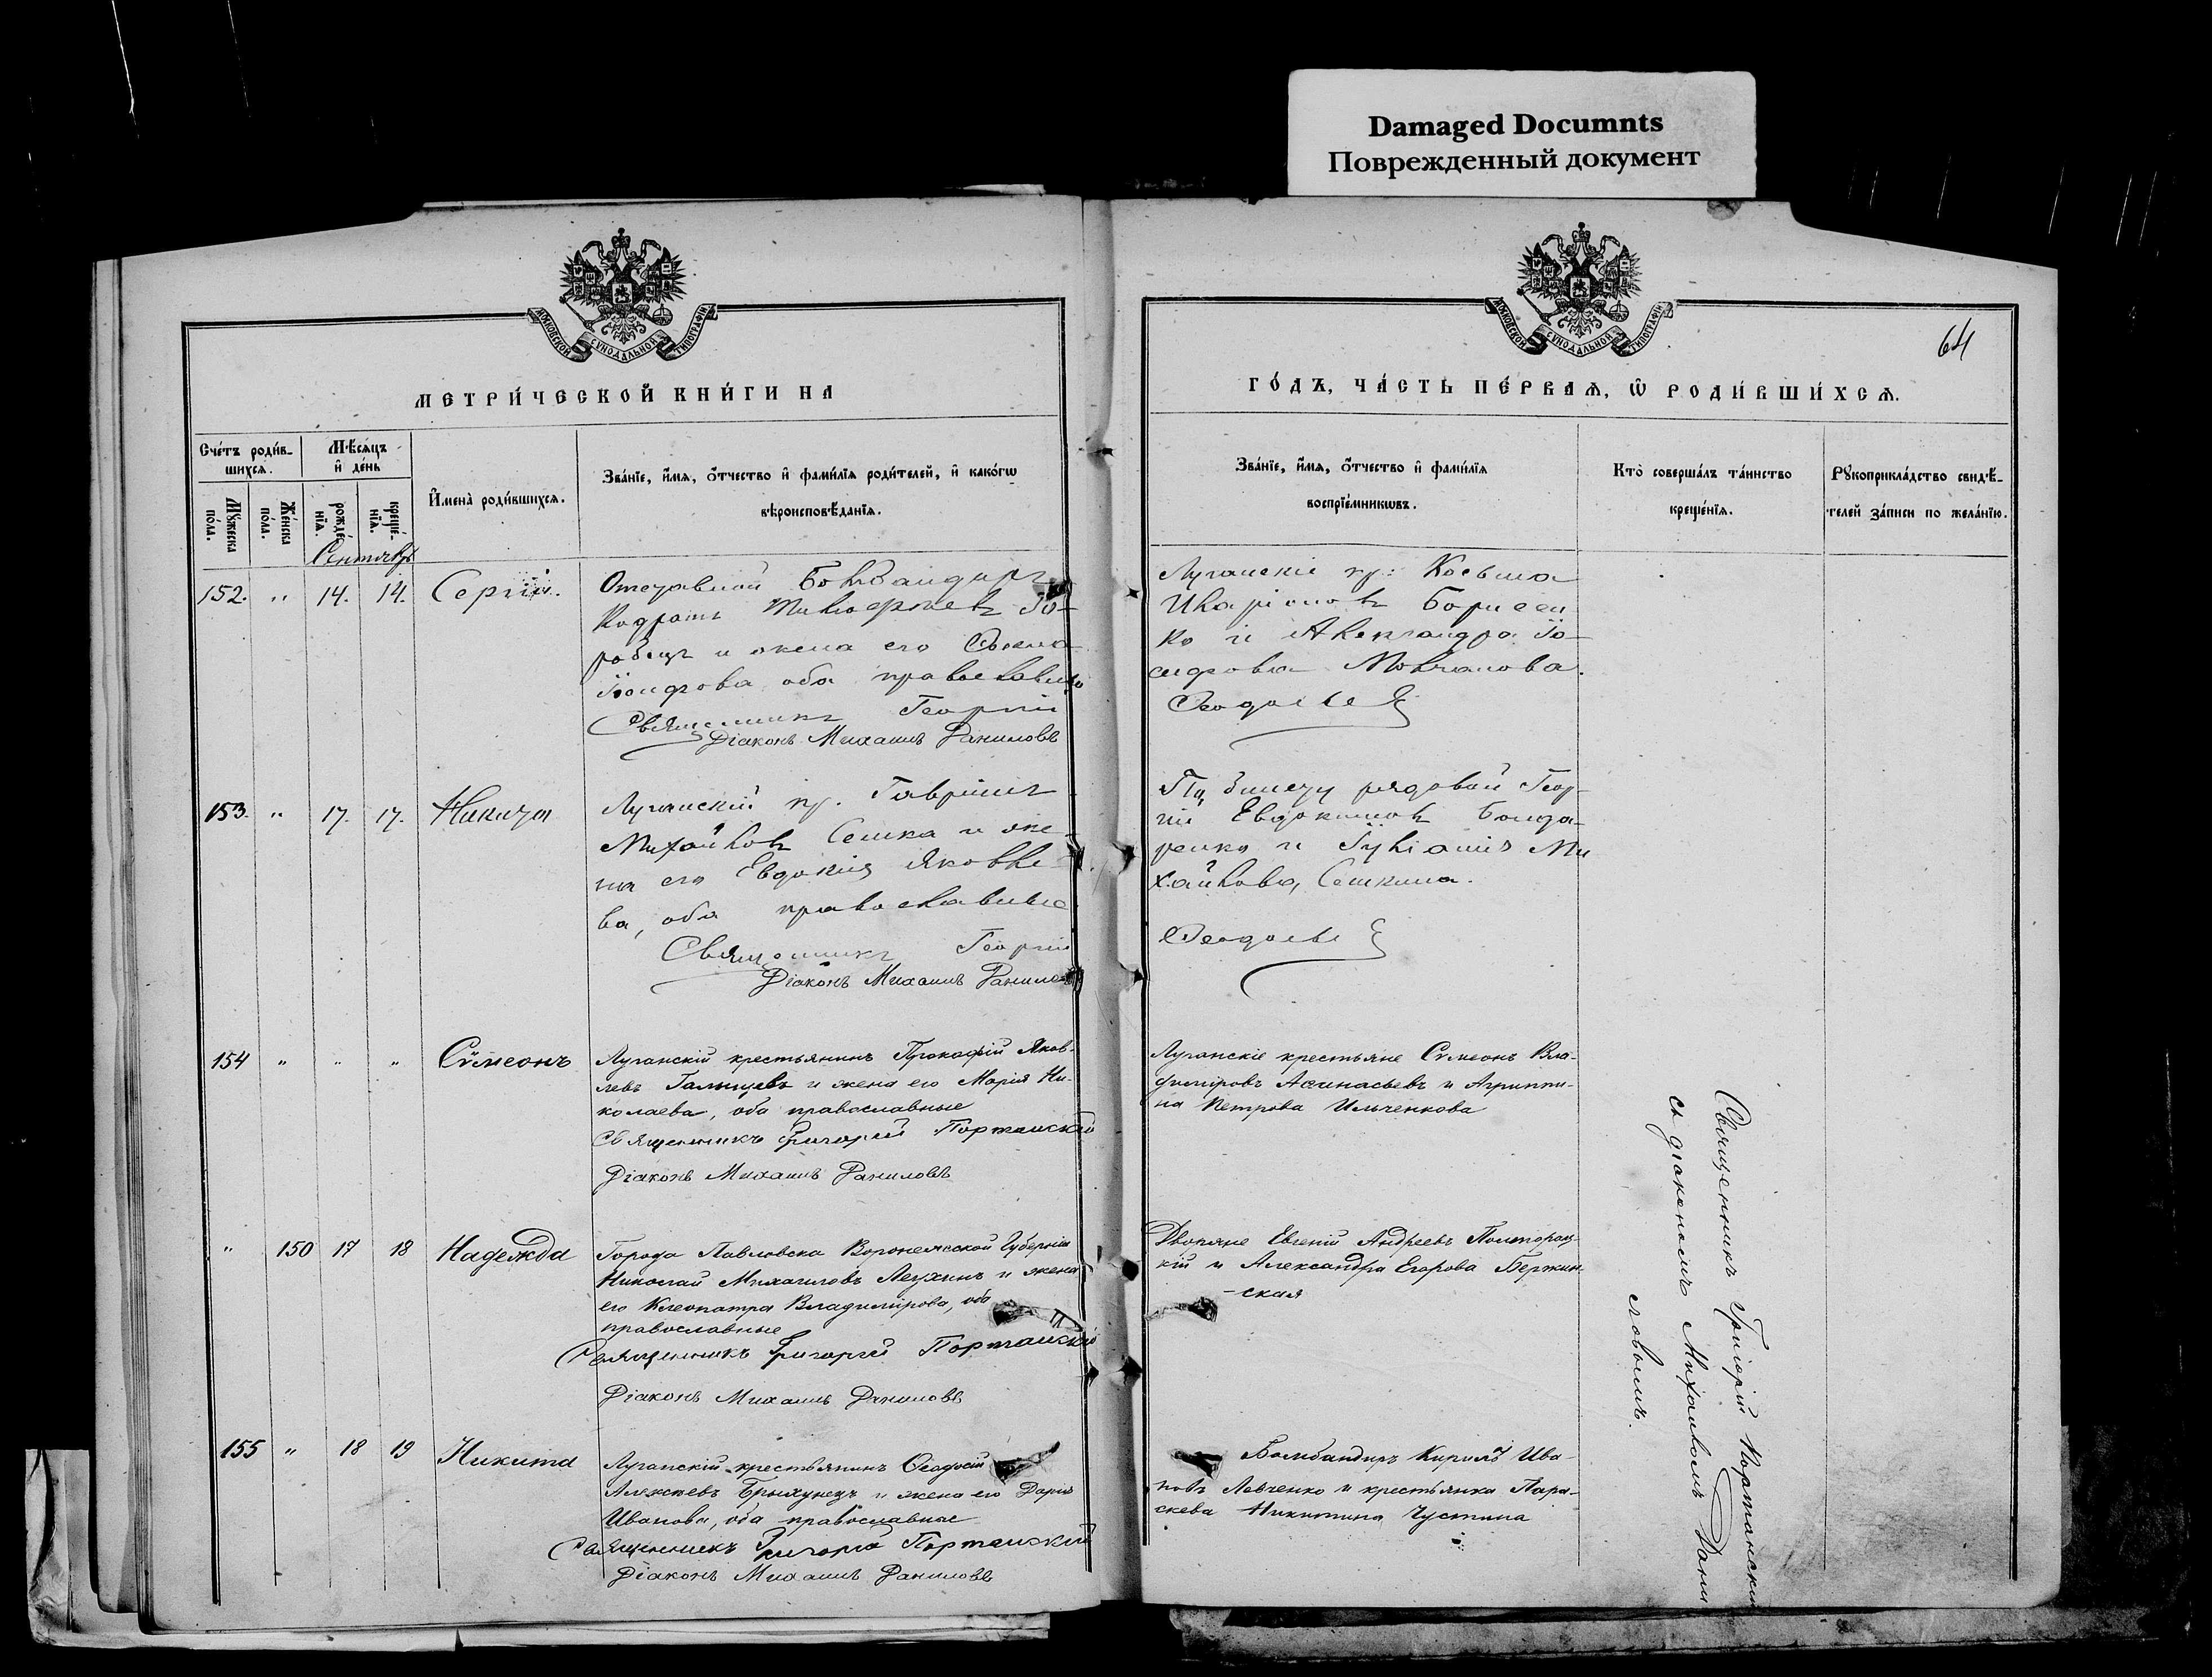 Damaged Documnts
Поврежденный документ
МОСКОВСКОЙ СУНОДАЛЬНОЙ ТИПОГРАФІИ
МЕТРИ́ЧЕСКОЙ КНИ́ГИ НА
Сче́тъ роди́в-
шихся.
Мѣ́сяцъ
и҆ де́нь
И҆мена̀ роди́вшихся.
Зва́нїе, и҆́мя, ѻ҆́тчество и҆ фами́лїя роди́телей, и҆ како́гѡ
вѣроисповѣ́данїя.
Мꙋ́жеска
по́ла.
Же́нска
по́ла.
рожде́-
нїя.
креще́-
нїя.
Сентябрь
152. " 14. 14. Сергій.
Отставной Бомбандиръ
Кодратъ Никифоровъ Го-
робецъ и жена его
Іосифова, оба православные
Священникъ Георгій
Діаконъ Михаилъ Даниловъ
153. " 17. 17. Никита
Луганскій кр. Гавріилъ
Михайловъ Сешка и же-
на его Евдокія Яковле-
ва, оба православные
Священникъ Георгій
Діаконъ Михаилъ Данилов
154 " " " Сѵмеонъ
Луганскій крестьянинъ Прокофій Яков-
левъ Гальцевъ и жена его Марія Ни-
колаева, оба православные
Священникъ Григорій Порта­нскій
Діаконъ Михаилъ Даниловъ
" 150 17 18 Надежда
Города Павловска Воронежской Губерніи
Николай Михаиловъ Леухинъ и жена
его Клеопатра Владимірова, оба
православные
Священникъ Григорій Портанскій
Діаконъ Михаилъ Даниловъ
155 " 18 19 Никита
Луганскій крестьянинъ Ѳеодосій
Алексѣевъ Брыхунецъ и жена его Дарія
Иванова, оба православные
Священникъ Григорій Портанскій
Діаконъ Михаилъ Даниловъ
МОСКОВСКОЙ СУНОДАЛЬНОЙ ТИПОГРАФІИ
64
ГО́ДЪ, ЧА́СТЬ ПЕ́РВАЯ, Ѡ҆ РОДИ́ВШИХСЯ.
Зва́нїе, и҆́мя, ѻ҆́тчество и҆ фами́лїя
воспрїе́мникѡвъ.
Кто̀ соверша́лъ та́инство
креще́нїя.
Рꙋкоприкла́дство свидѣ́-
телей за́писи по жела́нїю.
Луганскіе кр: Косьма
Иларіоновъ Борисен
ко и Александра Іо-
сифова Молчанова.
билету рядовой Геор-
гій Евдокимовъ Бонда-
ренко и Іуліанія Ми
хайлова Сешкина.
Луганскіе крестьяне Сѵмеонъ Вла-
диміровъ Аѳанасьевъ и Агриппи-
на Петрова Ильченкова
Дворяне Евгеній Андреевъ Полторац-
кій и Александра Егорова Бержин-
-ская
Бомбандиръ Кирилъ Ива-
новъ Левченко и крестьянка Пара-
скева Никитина Чустина
Священникъ Григорій Портанскій
съ діакономъ Михаиломъ Дани
ловымъ.